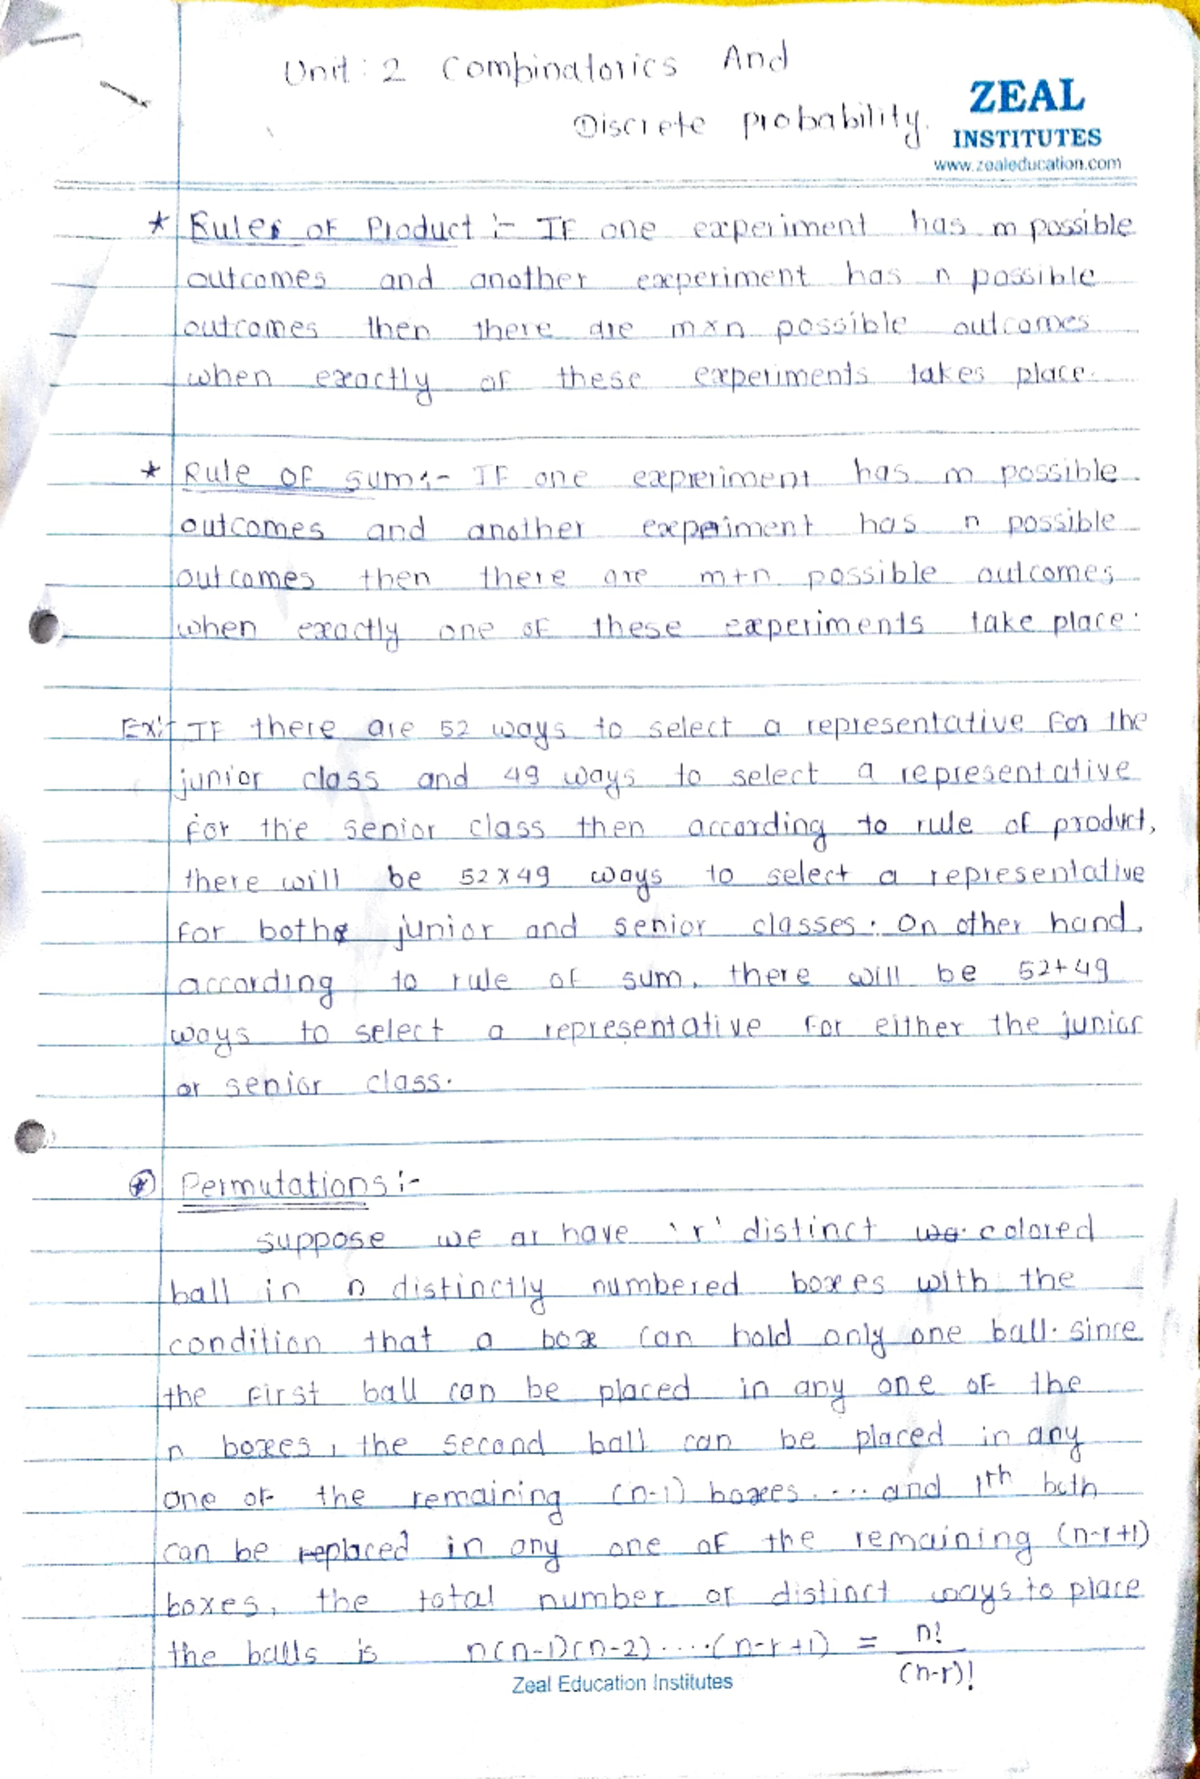 Unit: 2 Combinatorics And
Discrete probability.
ZEAL
INSTITUTES
www.zealeducation.com
* Rules of Product :- IF one experiment has m possible
outcomes and another experiment has n possible
outcomes then there are m×n possible outcomes
when exactly of these experiments takes place.
* Rule of sum :- IF one experiment has m possible
outcomes and another experiment has n possible
outcomes then there are m+n possible outcomes
when exactly one of these experiments take place.
Ex:- IF there are 52 ways to select a representative for the
junior class and 49 ways to select a representative
for the senior class then according to rule of product,
there will be 52×49 ways to select a representative
for both junior and senior classes. On other hand,
according to rule of sum, there will be 52+49
ways to select a representative for either the junior
or senior class.
* Permutations :-
suppose we ar have 'r' distinct colored
ball in n distinctly numbered boxes with the
condition that a box can hold only one ball. since
the first ball can be placed in any one of the
n boxes, the second ball can be placed in any
one of the remaining (n-1) boxes .... and
can be replaced in any one of the remaining (n-r+1)
boxes, the total number of distinct ways to place
the balls is n(n-1)(n-2)....(n-r+1) = n!/(n-r)!
Zeal Education Institutes